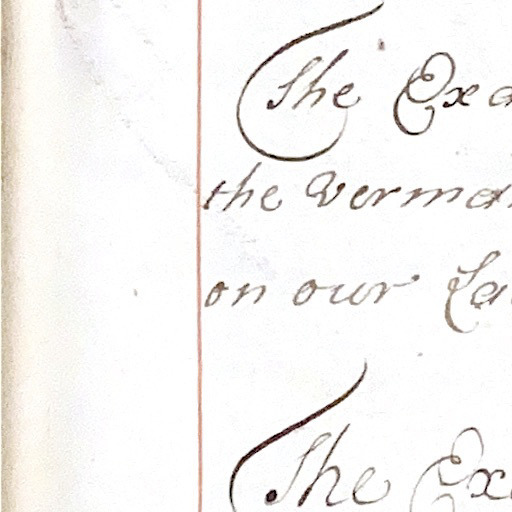 The Exa
the Germa
on our La
The Ex